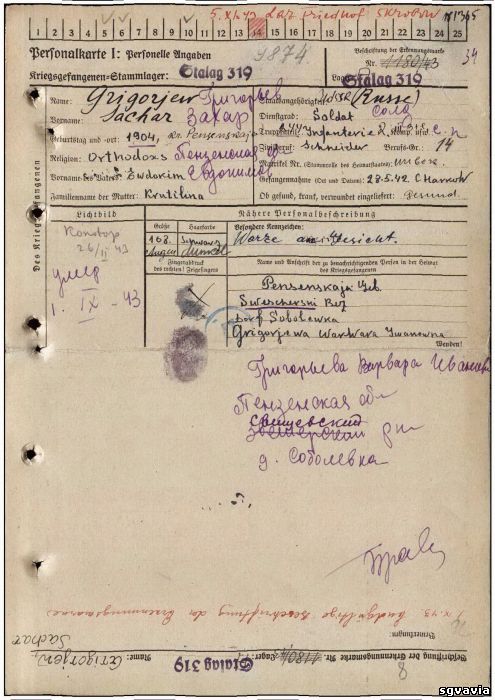 5.XI.43 Laz. Friedhof Skrobow
1 2 3 4 5 6 7 8 9 10 11 12 13 14 15 16 17 18 19 20 21 22 23 24 25
Personalkarte I: Personelle Angaben
9874
Beschriftung der Erkennungsmarke
Nr. 11180/43
34
Kriegsgefangenen-Stammlager: Stalag 319
Lager: Stalag 319
Des Kriegsgefangenen
Name: Grigorjew Григорьев
Vorname: Sachar Захар
Geburtstag und -ort: 1904, Pensenskaja
Religion: Orthodoxs Пензенская
Vorname des Vaters: Ewdokim Евдокимов
Familienname der Mutter: Krutilina
Staatsangehörigkeit: (Russe)
Dienstgrad: Soldat Солд
Truppenteil: Infanterie R.
Zivilberuf: Schneider Berufs-Gr.: 14
Matrikel Nr. (Stammrolle des Heimatstaates): unbek.
Gefangennahme (Ort und Datum): 28.5.42 Charkow
Ob gesund, krank, verwundet eingeliefert: Gesund.
Lichtbild
26/II 43
умер
1. IX - 43
Nähere Personalbeschreibung
Größe
Haarfarbe
168.
Schwarz
Besondere Kennzeichen:
Warze Gesicht.
Fingerabdruck
des rechten! Zeigefingers
Name und Anschrift der zu benachrichtigenden Person in der Heimat
des Kriegsgefangenen
Pensenskaja Geb.
Swescherski Bez
Dorf Sobolewka
Grigorjewa Warwara Iwanowna
Wenden!
Григорьева Варвара Ивановна
Пензенская обл
Свищевский
р-н
д. Соболевка
Beschriftung der Erkennungsmarke
Bemerkungen:
Name: Grigorjew
Sachar
Beschriftung der Erkennungsmarke Nr. 11180/43
Lager: Stalag 319
8
sgvavia